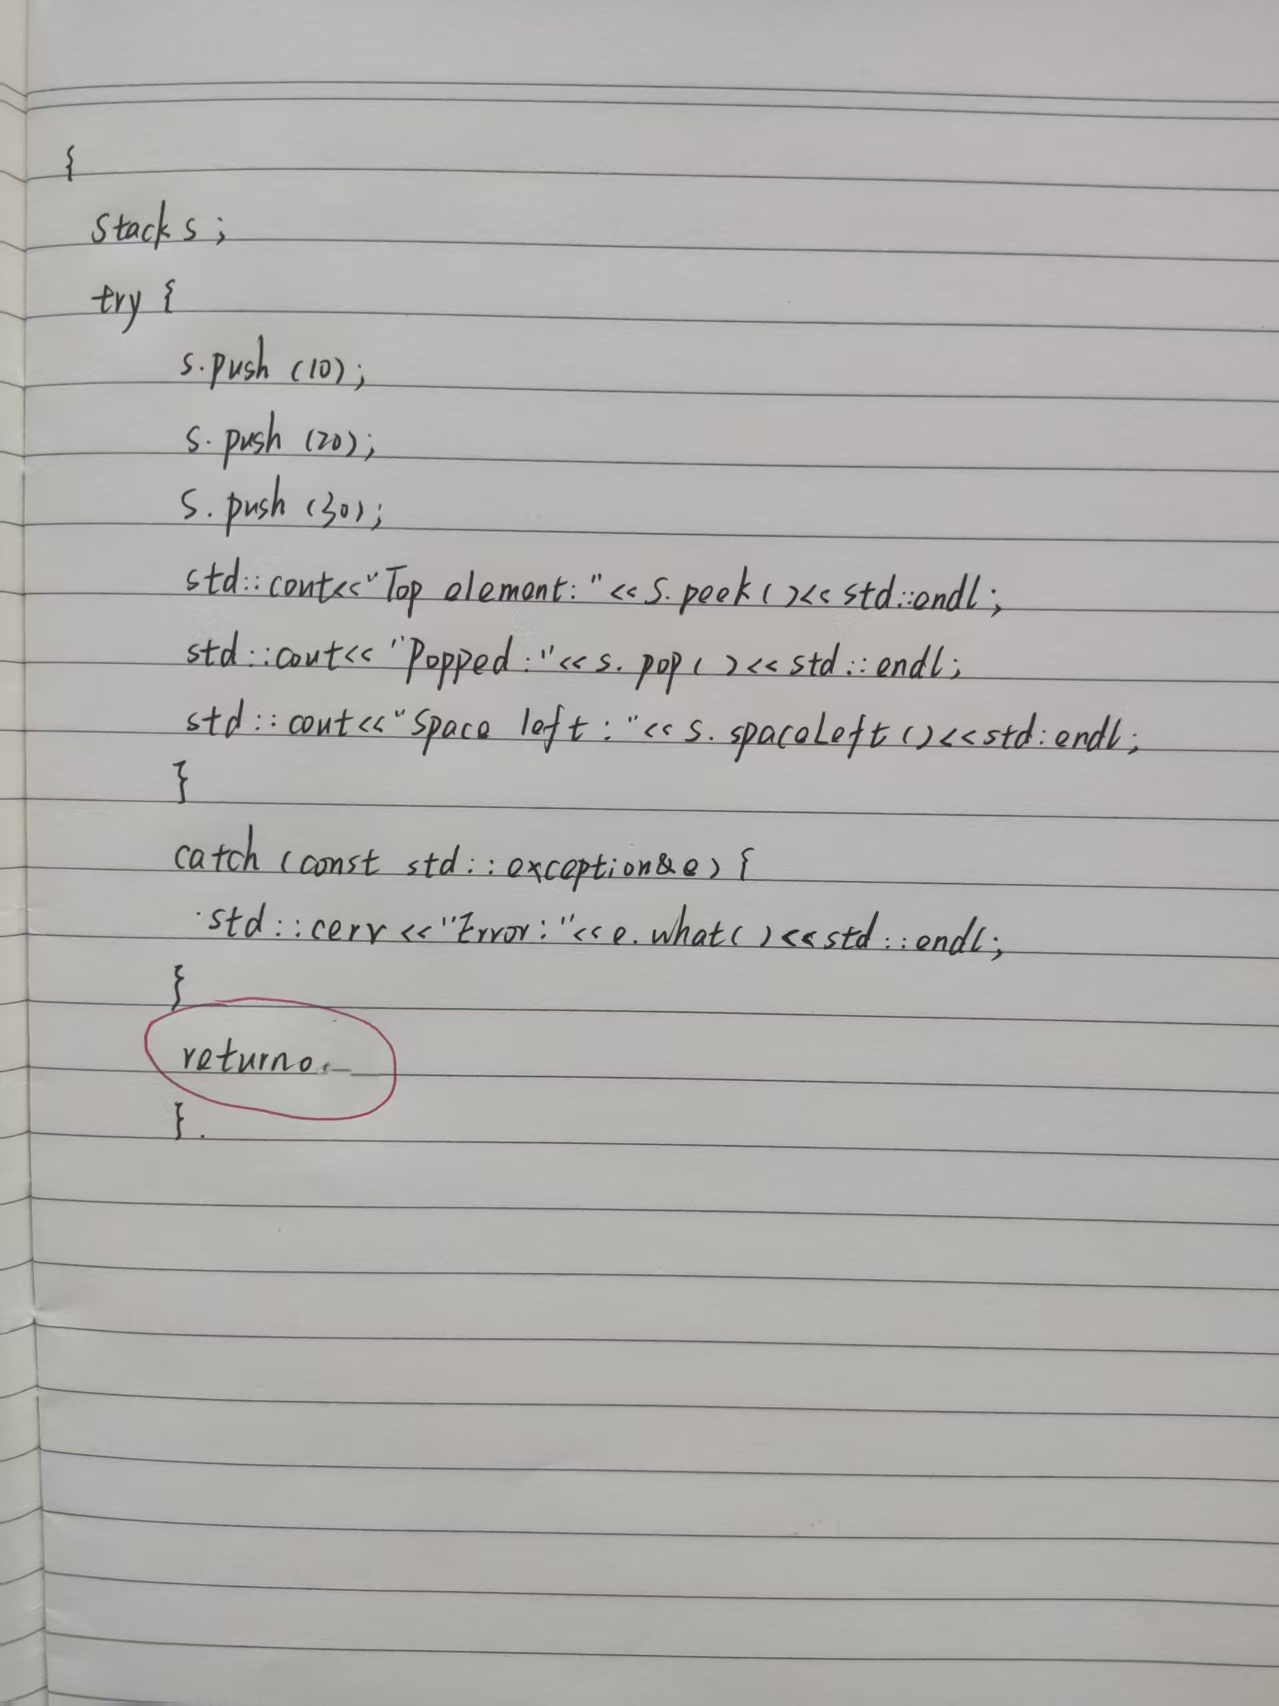 {
Stack s;
try {
s.push (10);
s.push (20);
s.push (30);
std::cout<<"Top element:"<<s.peek()<<std::endl;
std::cout<<"Popped:"<<s.pop()<<std::endl;
std::cout<<"Space left:"<<s.spaceLeft()<<std:endl;
}
catch (const std::exception&e) {
std::cerr<<"Error:"<<e.what()<<std::endl;
}
return0
}.